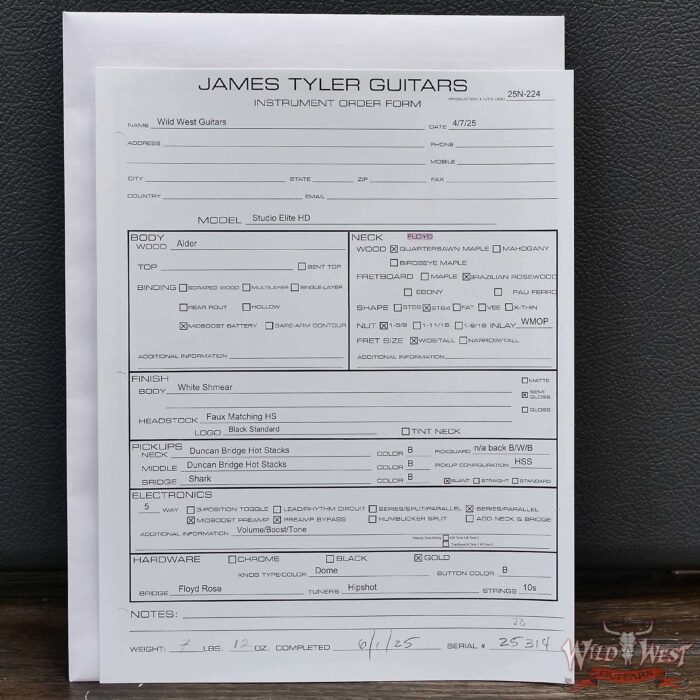 JAMES TYLER GUITARS
INSTRUMENT ORDER FORM
25N-224
NAME Wild West Guitars DATE 4/7/25
ADDRESS PHONE
MOBILE
CITY STATE ZIP FAX
COUNTRY EMAIL
MODEL Studio Elite HD
BODY
WOOD Alder
TOP BENT TOP
BINDING SCRAPED WOOD MULTILAYER SINGLE-LAYER
REAR ROUT HOLLOW
MIDBOOST BATTERY BARE-ARM CONTOUR
ADDITIONAL INFORMATION
NECK FLOYD
WOOD QUARTERSAWN MAPLE MAHOGANY
BIRDSEYE MAPLE
FRETBOARD MAPLE BRAZILIAN ROSEWOOD
EBONY PAU FERRO
SHAPE ST59 ST64 FAT VEE X-THIN
NUT 1-5/8 1-11/16 1-9/16 INLAY WMOP
FRET SIZE WIDE/TALL NARROW/TALL
ADDITIONAL INFORMATION
FINISH
BODY White Shmear
MATTE
SEMI GLOSS
GLOSS
HEADSTOCK Faux Matching HS
LOGO Black Standard TINT NECK
PICKUPS
NECK Duncan Bridge Hot Stacks COLOR B PICKGUARD n/a back B/W/B
MIDDLE Duncan Bridge Hot Stacks COLOR B PICKUP CONFIGURATION HSS
BRIDGE Shark COLOR B SLANT STRAIGHT STANDARD
ELECTRONICS
5 WAY 3-POSITION TOGGLE LEAD/RHYTHM CIRCUIT SERIES/SPLIT/PARALLEL SERIES/PARALLEL
MIDBOOST PREAMP PREAMP BYPASS HUMBUCKER SPLIT ADD NECK & BRIDGE
ADDITIONAL INFORMATION Volume/Boost/Tone
HARDWARE CHROME BLACK GOLD
KNOB TYPE/COLOR Dome BUTTON COLOR B
BRIDGE Floyd Rose TUNERS Hipshot STRINGS 10s
NOTES:
WEIGHT: 7 LBS. 12 OZ. COMPLETED 6/1/25 SERIAL # 25314
WILD WEST
GUITARS